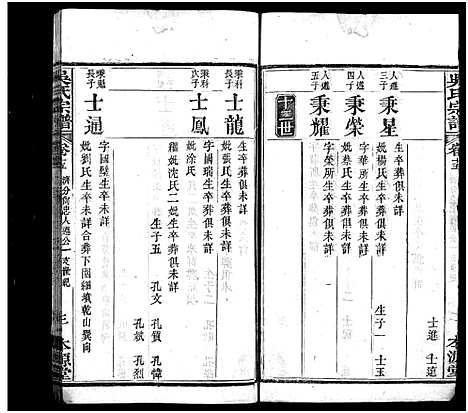 吳氏宗譜
士進 士達
人進三子 秉星
妣楊氏生卒葬俱未詳
生子一 士玉
人進四子 秉榮
字華所生卒葬俱未詳
妣蔡氏生卒葬俱未詳
人進五子 秉耀
字榮所生卒葬俱未詳
十二世
秉科長子 士龍
生卒葬俱未詳
妣張氏生卒葬俱未詳
秉科次子 士鳳
字國瑞生卒葬俱未詳
妣徐氏
繼妣沈氏二妣生卒葬俱未詳
生子五 孔文 孔質 孔偉
孔斌 孔烈
秉魁長子 士通
字國璧生卒未詳
妣劉氏生卒未詳合葬下園細墳乾山巽向
吳氏宗譜
卷十五
本源堂